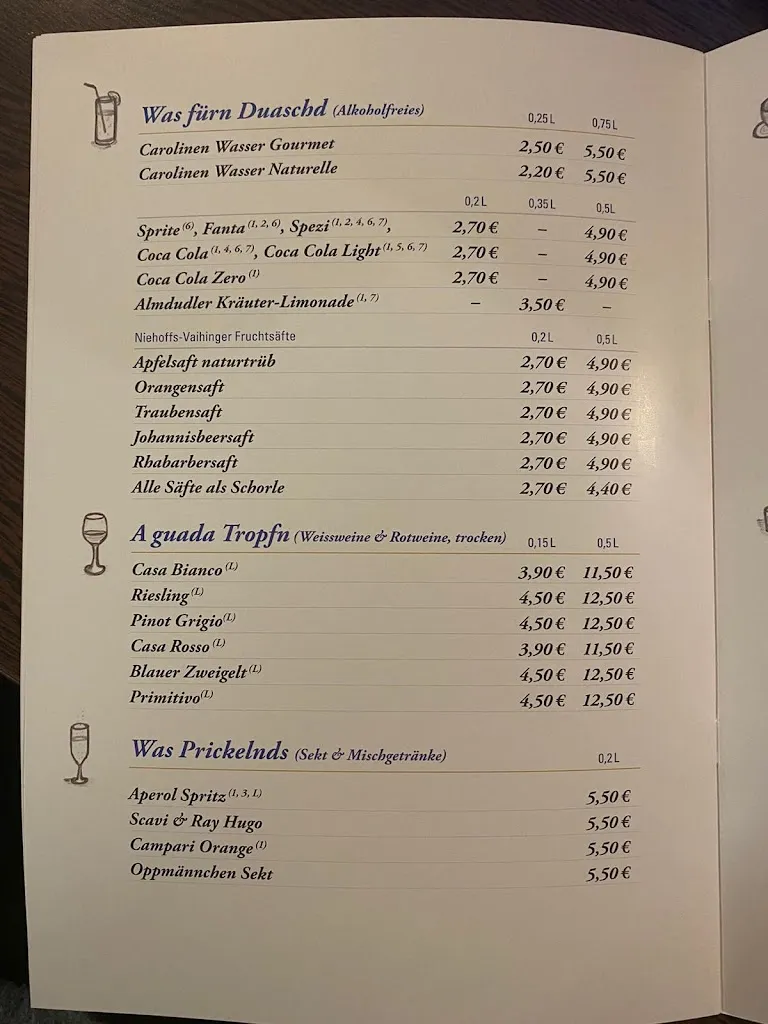 Was fürn Duaschd (Alkoholfreies) 0,25 L 0,75 L
Carolinen Wasser Gourmet 2,50 € 5,50 €
Carolinen Wasser Naturelle 2,20 € 5,50 €
0,2 L 0,35 L 0,5 L
Sprite (6), Fanta (1, 2, 6), Spezi (1, 2, 4, 6, 7), 2,70 € – 4,90 €
Coca Cola (1, 4, 6, 7), Coca Cola Light (1, 5, 6, 7) 2,70 € – 4,90 €
Coca Cola Zero (1) 2,70 € – 4,90 €
Almdudler Kräuter-Limonade (1, 7) – 3,50 € –
Niehoffs-Vaihinger Fruchtsäfte 0,2 L 0,5 L
Apfelsaft naturtrüb 2,70 € 4,90 €
Orangensaft 2,70 € 4,90 €
Traubensaft 2,70 € 4,90 €
Johannisbeersaft 2,70 € 4,90 €
Rhabarbersaft 2,70 € 4,90 €
Alle Säfte als Schorle 2,70 € 4,40 €
A guada Tropfn (Weissweine & Rotweine, trocken) 0,15 L 0,5 L
Casa Bianco (L) 3,90 € 11,50 €
Riesling (L) 4,50 € 12,50 €
Pinot Grigio (L) 4,50 € 12,50 €
Casa Rosso (L) 3,90 € 11,50 €
Blauer Zweigelt (L) 4,50 € 12,50 €
Primitivo (L) 4,50 € 12,50 €
Was Prickelnds (Sekt & Mischgetränke) 0,2 L
Aperol Spritz (1, 3, L) 5,50 €
Scavi & Ray Hugo 5,50 €
Campari Orange (1) 5,50 €
Oppmännchen Sekt 5,50 €